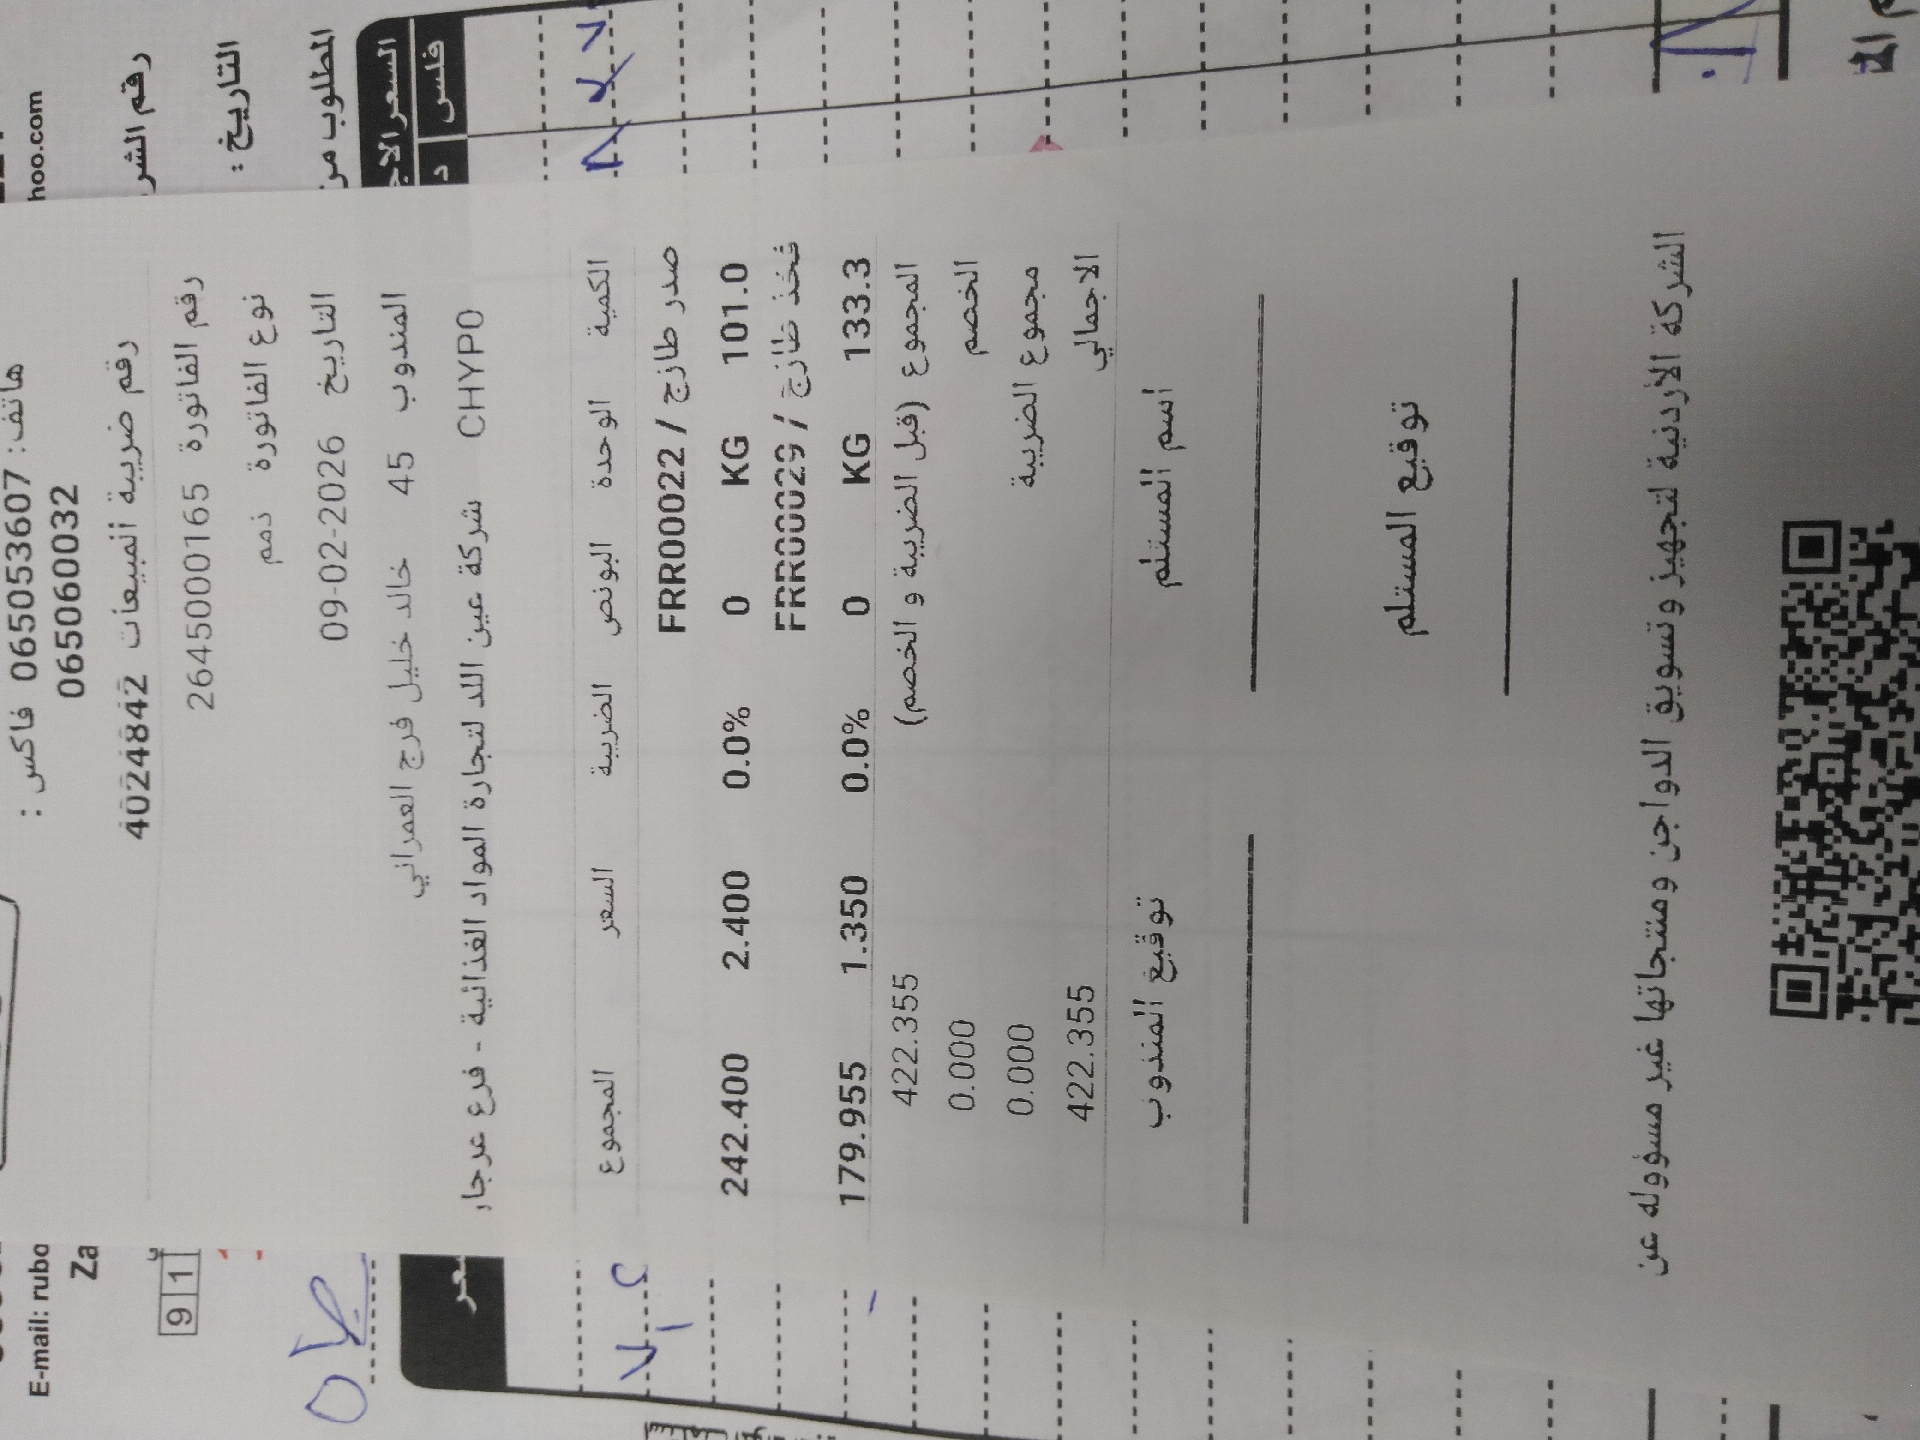 هاتف: 065053607 فاكس :
065060032
رقم ضريبة المبيعات 4024842
رقم الفاتورة 2645000165
نوع الفاتورة ذمم
التاريخ 09-02-2026
المندوب 45 خالد خليل فرج العمراني
CHYP0 شركة عين اللد لتجارة المواد الغذائية - فرع عرجار
الكمية الوحدة البونص الضريبة السعر المجموع
صدر طازج / FRR00022
101.0 KG 0 0.0% 2.400 242.400
فخذ طازج / FRR00029
133.3 KG 0 0.0% 1.350 179.955
المجموع (قبل الضريبة و الخصم) 422.355
الخصم 0.000
مجموع الضريبة 0.000
الاجمالي 422.355
اسم المستلم توقيع المندوب
توقيع المستلم
الشركة الأردنية لتجهيز وتسويق الدواجن ومنتجاتها غير مسؤوله عن
hoo.com
رقم الشر
التاريخ :
المطلوب مر
السعر الاج
فلس د
E-mail: rubo
Za
9 1
عر